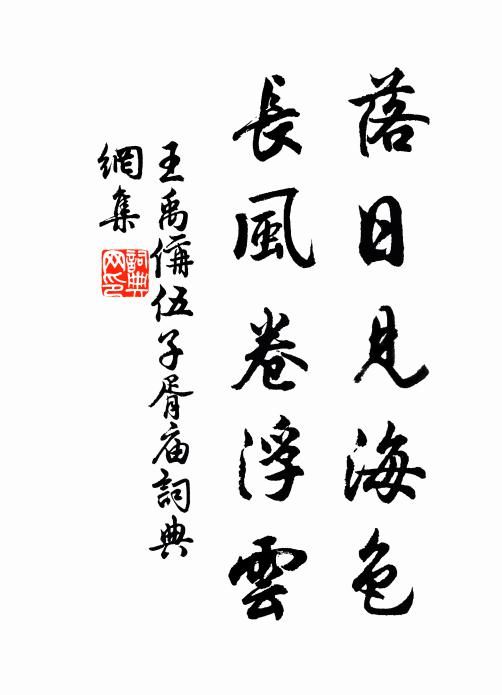 落日見海色
長風卷浮雲
王禹偁伍子胥庙詞典
網集
詞典网印